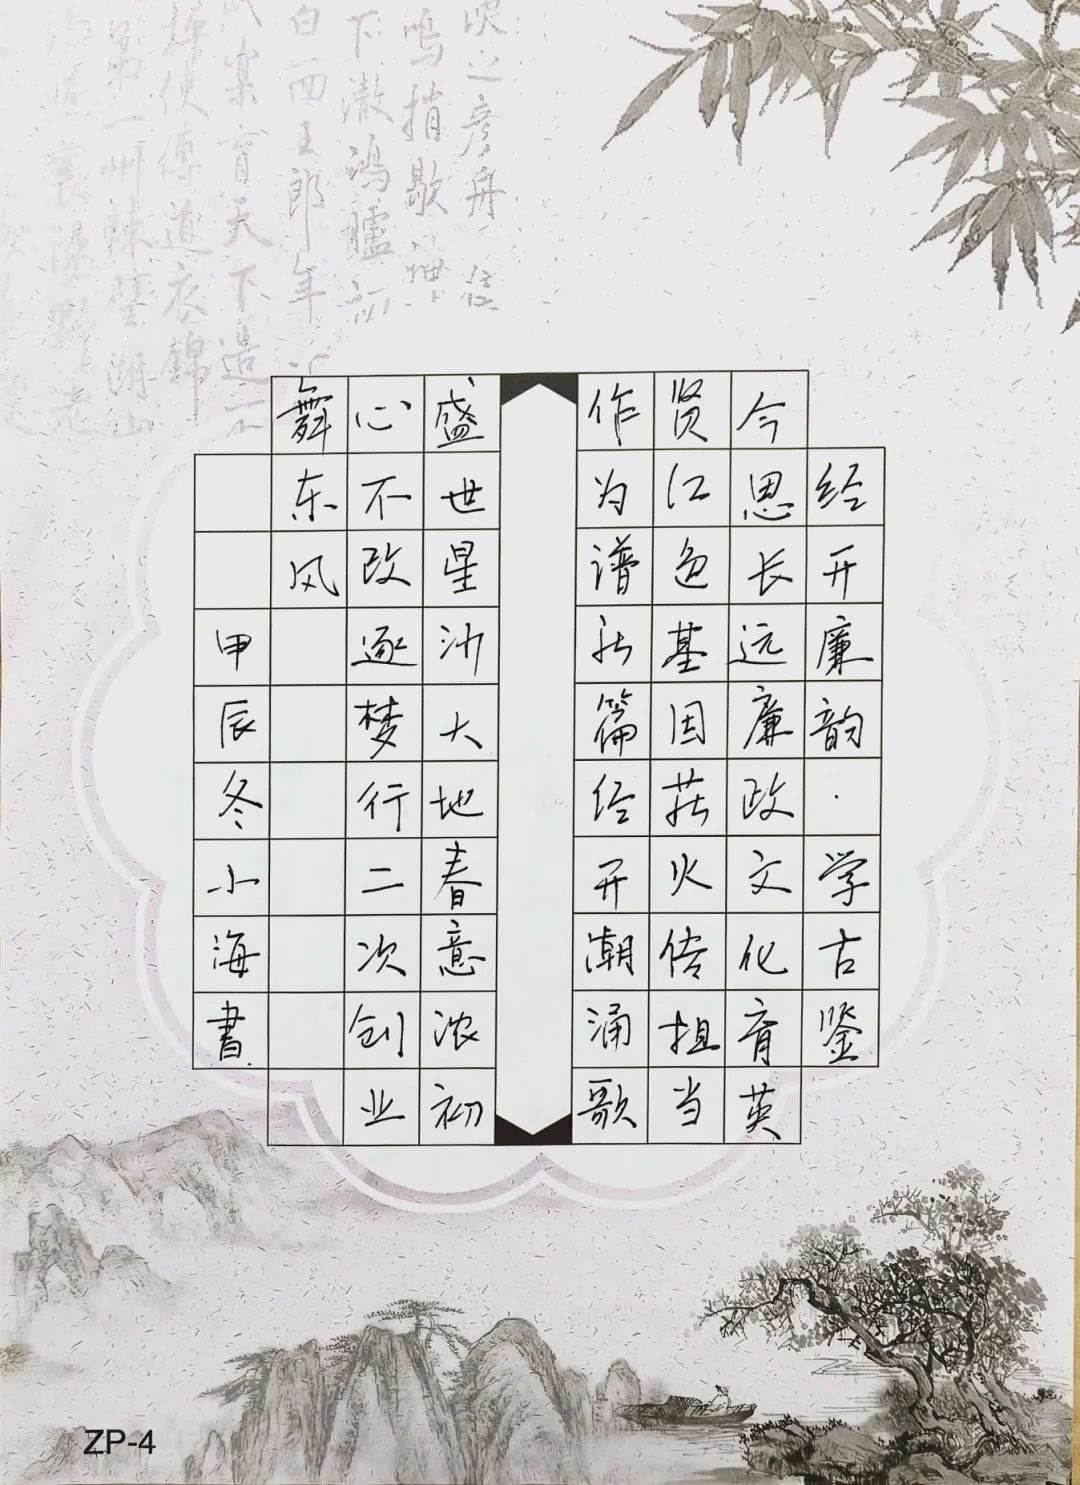 经开廉韵·学古鉴
今思长远廉政文化育英
贤红色基因薪火传担当
作为谱新篇经开潮涌歌
盛世星沙大地春意浓初
心不改逐梦行二次创业
舞东风
甲辰冬小海書
ZP-4